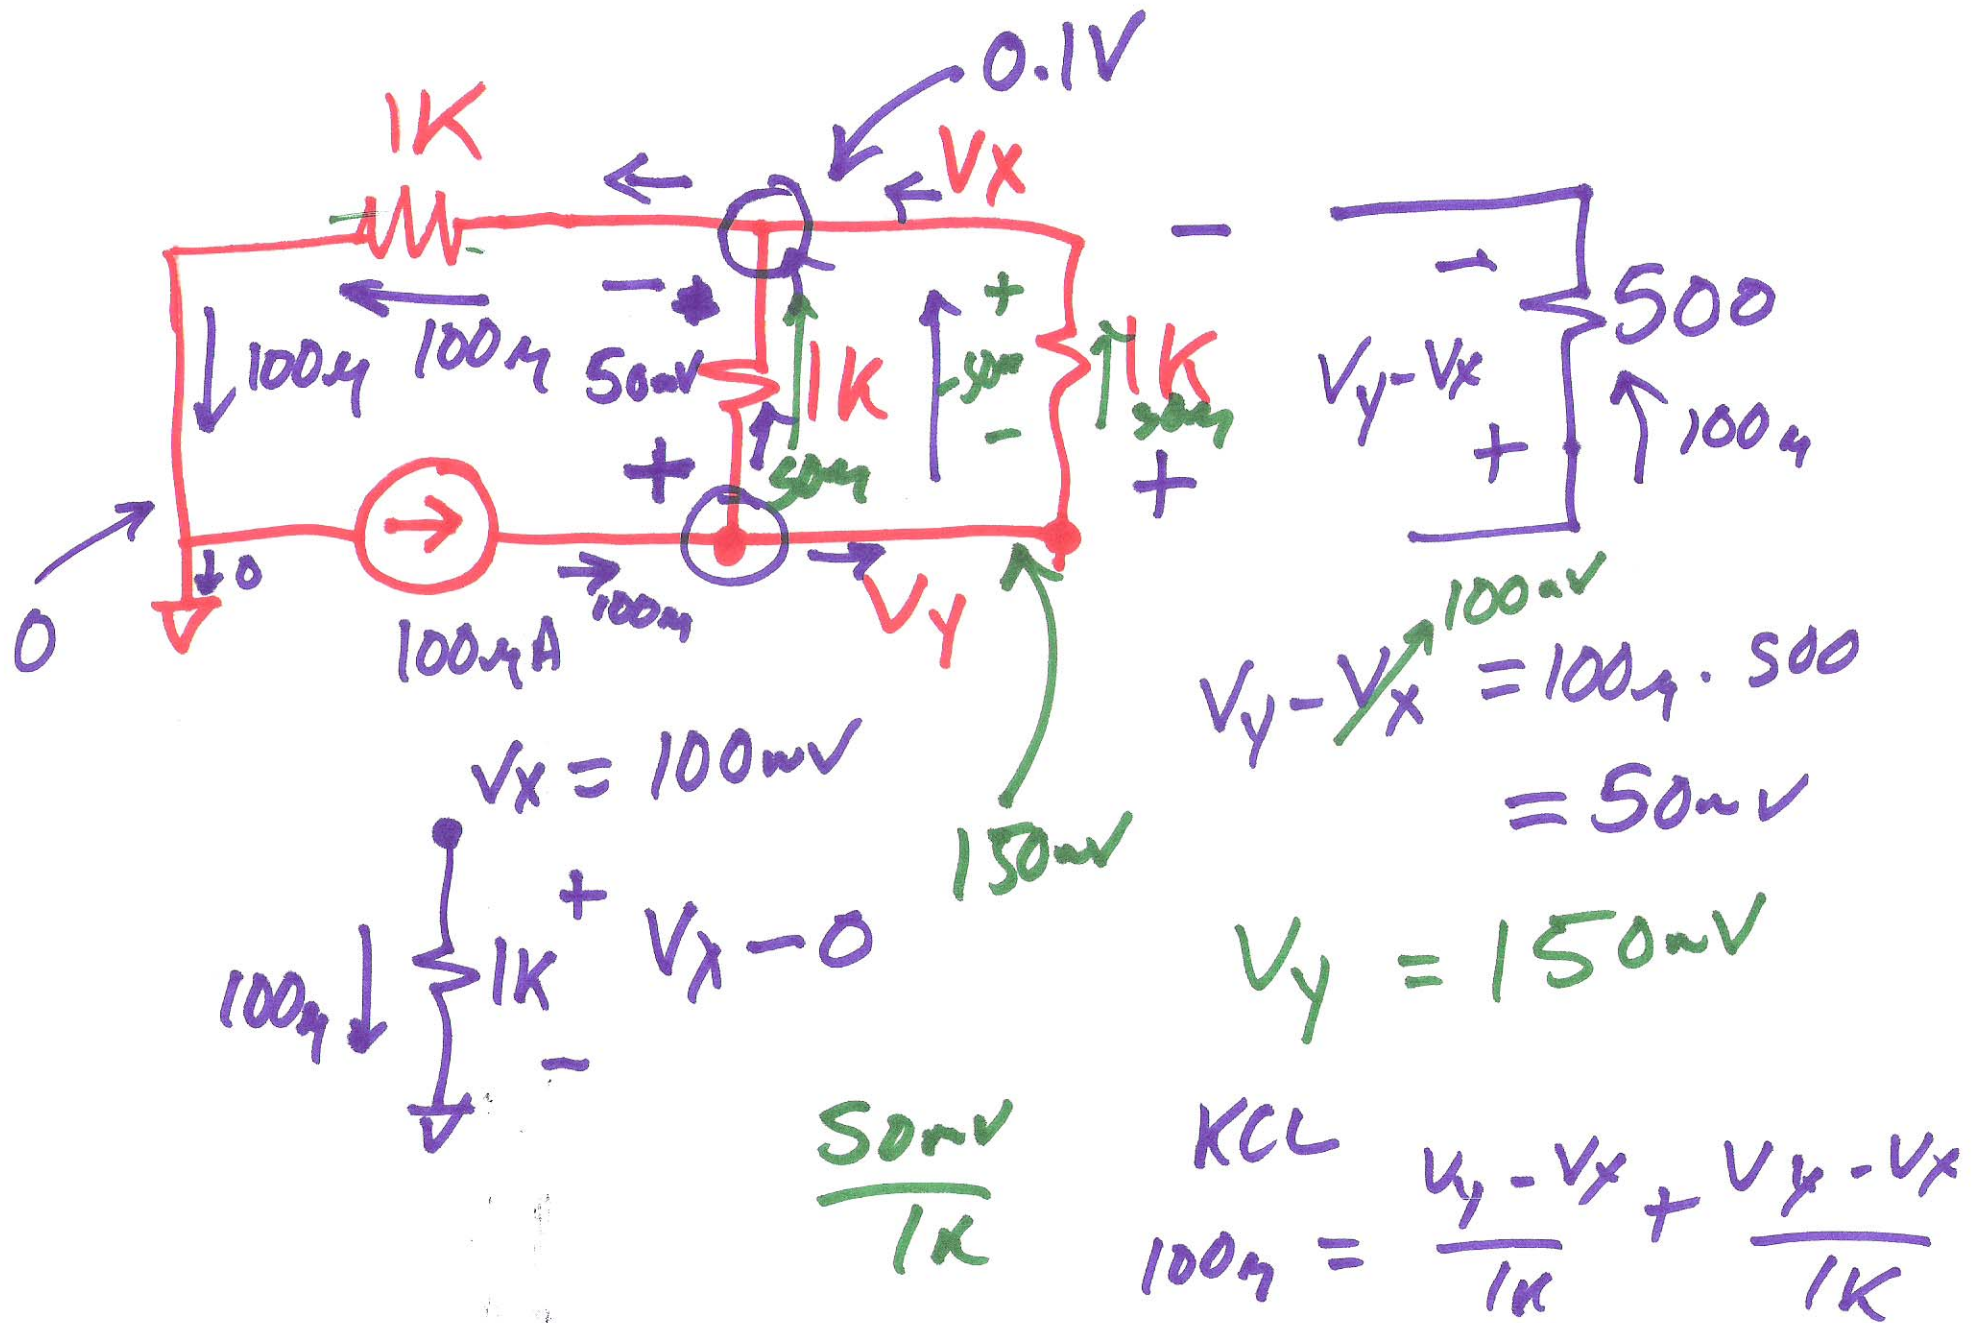 0.1V
1K
Vx
−
−
−
+
500
100μ
100μ
50mV
1K
-50m
1K
50μ
Vy-Vx
+
100μ
+
50μ
−
+
0
0
100μ
Vy
100μA
100mV
Vy-Vx = 100μ · 500
= 50mV
Vx = 100mV
150mV
+
100μ
1K
Vx - 0
−
Vy = 150mV
50mV
1K
KCL
100μ = Vy-Vx/1K + Vy-Vx/1K